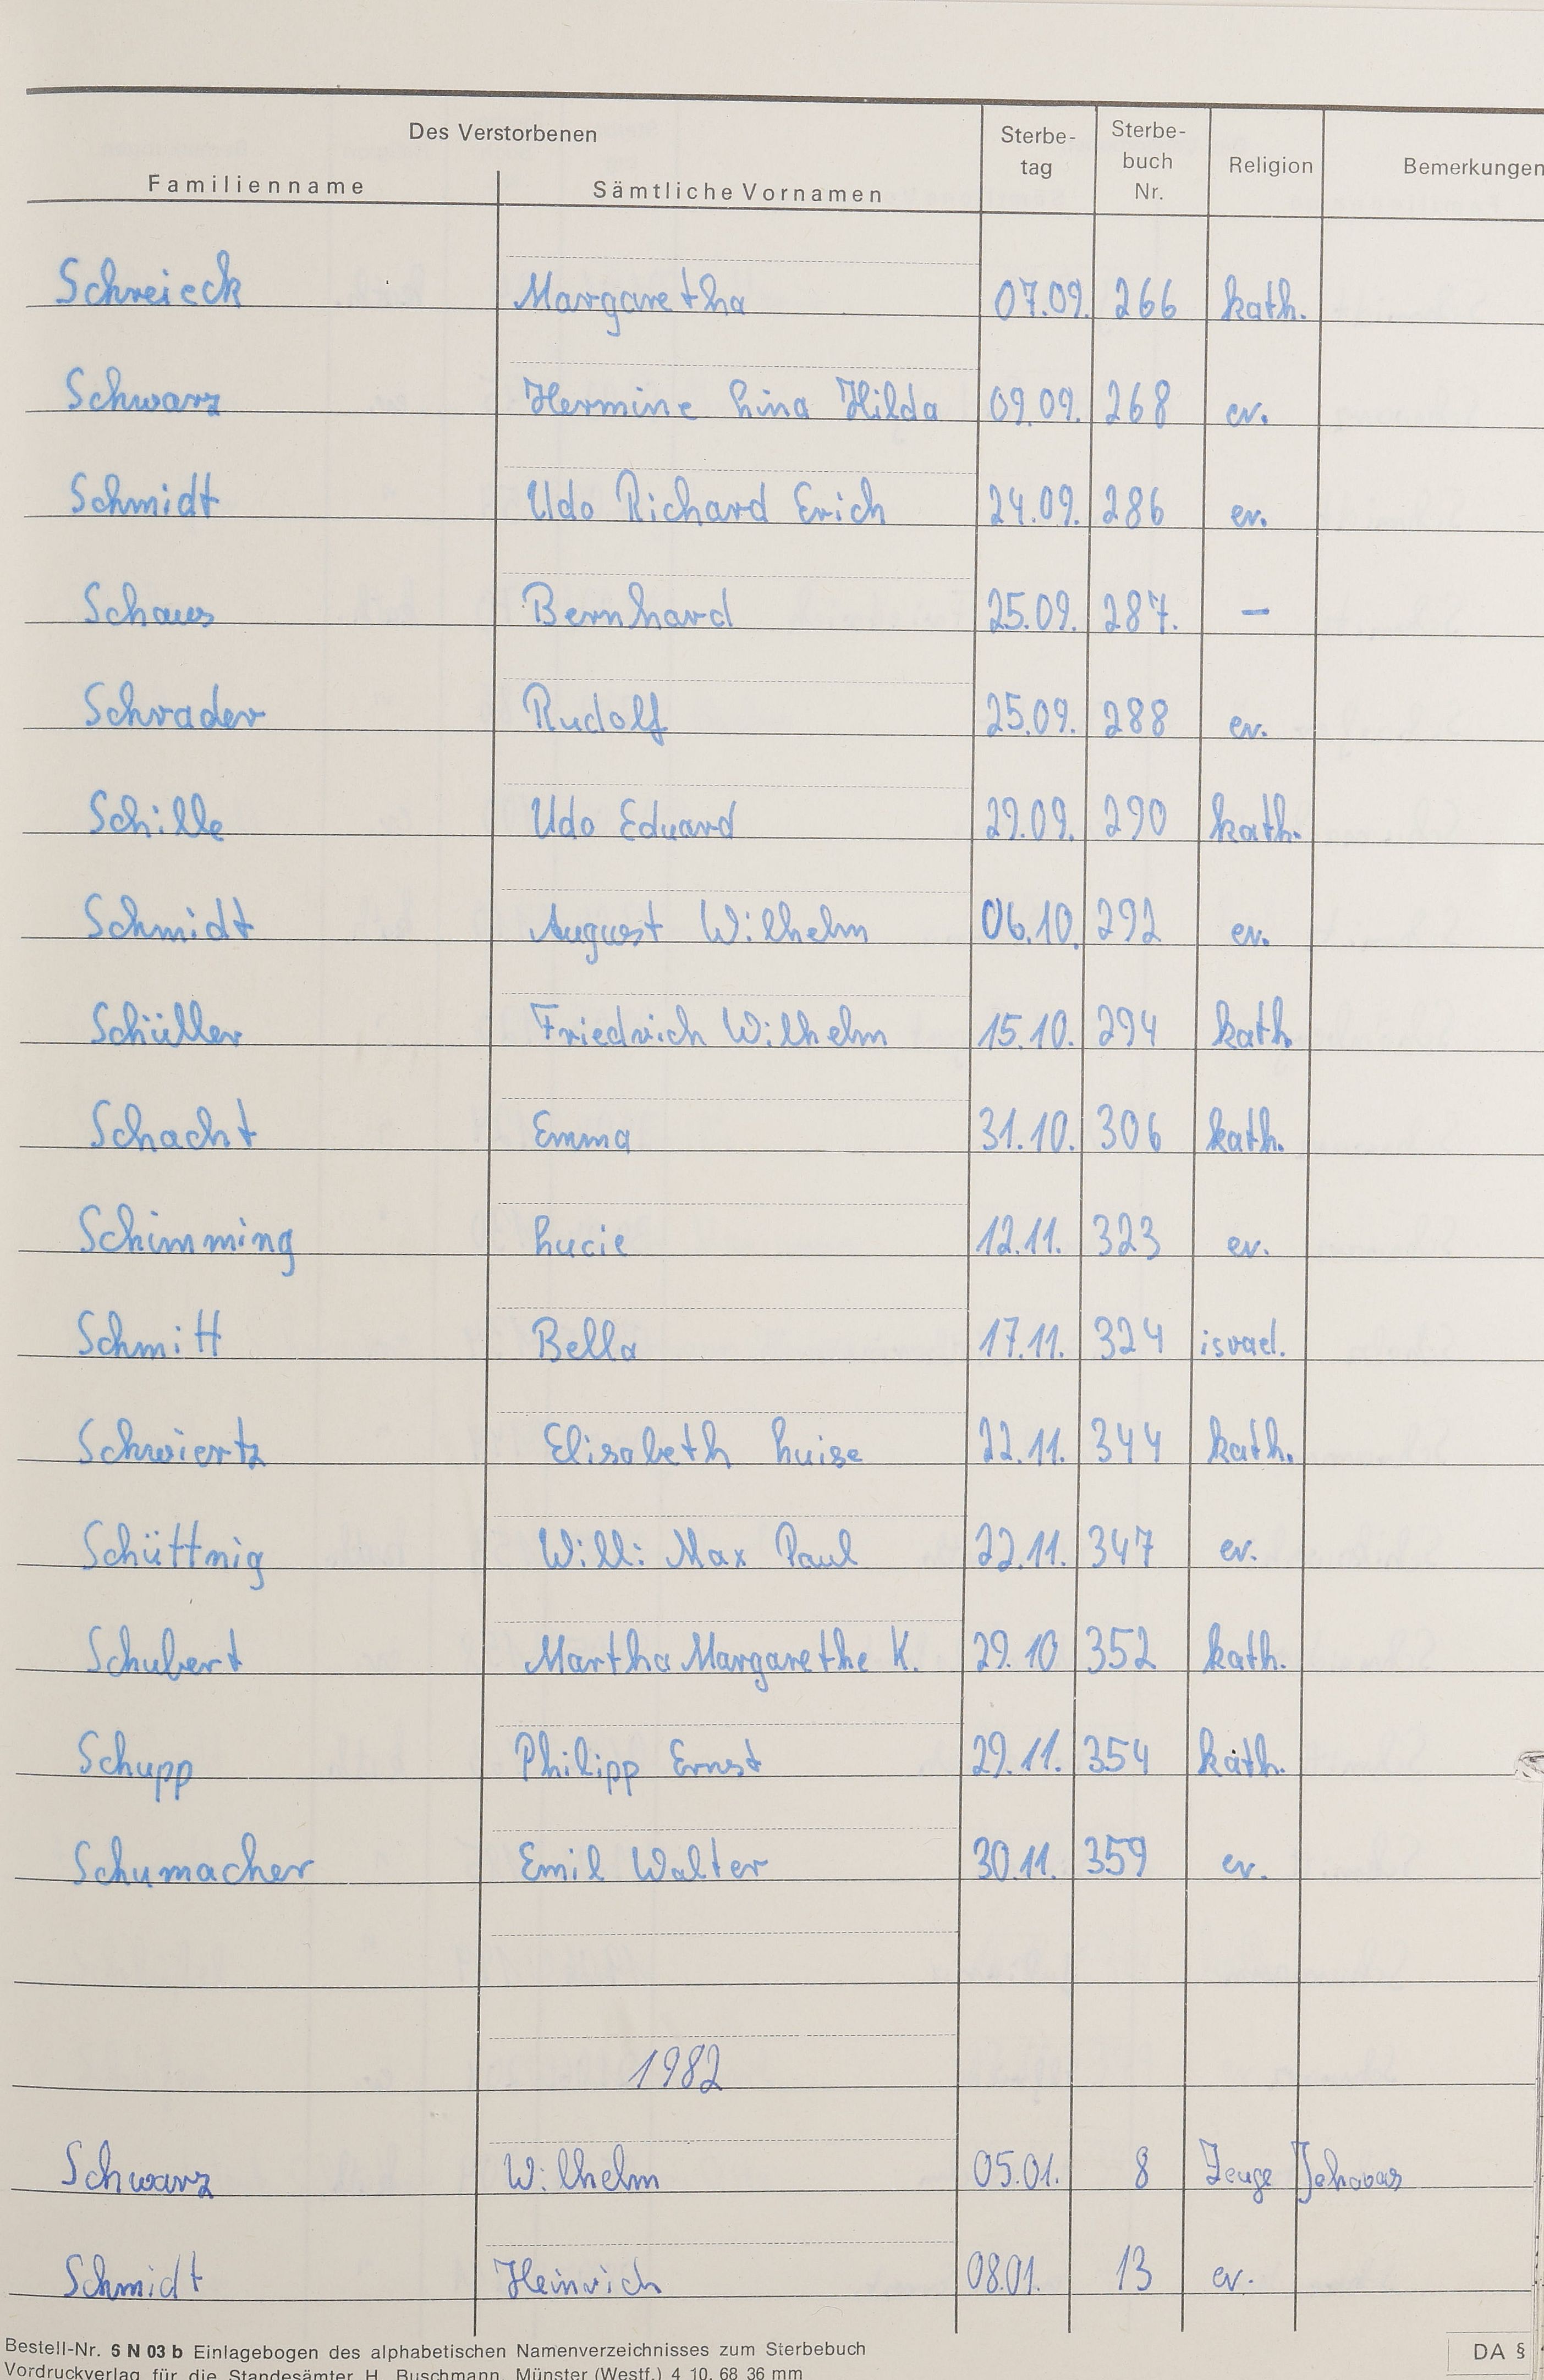 Des Verstorbenen
Familienname Sämtliche Vornamen Sterbe-tag Sterbe-buch Nr. Religion Bemerkungen
Schreieck Margaretha 07.09. 266 kath.
Schwarz Hermine Lina Hilda 09.09. 268 ev.
Schmidt Udo Richard Erich 24.09. 286 ev.
Schaus Bernhard 25.09. 287. –
Schrader Rudolf 25.09. 288 ev.
Schille Udo Eduard 29.09. 290 kath.
Schmidt August Wilhelm 06.10. 292 ev.
Schüller Friedrich Wilhelm 15.10. 294 kath.
Schacht Emma 31.10. 306 kath.
Schimming Lucie 12.11. 323 ev.
Schmitt Bella 17.11. 324 israel.
Schwiertz Elisabeth Luise 22.11. 344 kath.
Schüttnig Willi Max Paul 22.11. 347 ev.
Schubert Martha Margarethe K. 29.10 352 kath.
Schupp Philipp Ernst 29.11. 354 kath.
Schumacher Emil Walter 30.11. 359 ev.
1982
Schwarz Wilhelm 05.01. 8 Zeuge Jehovas
Schmidt Heinrich 08.01. 13 ev.
Bestell-Nr. 5 N 03 b Einlagebogen des alphabetischen Namenverzeichnisses zum Sterbebuch DA §
Vordruckverlag für die Standesämter H. Buschmann, Münster (Westf.) 4 10. 68 36 mm